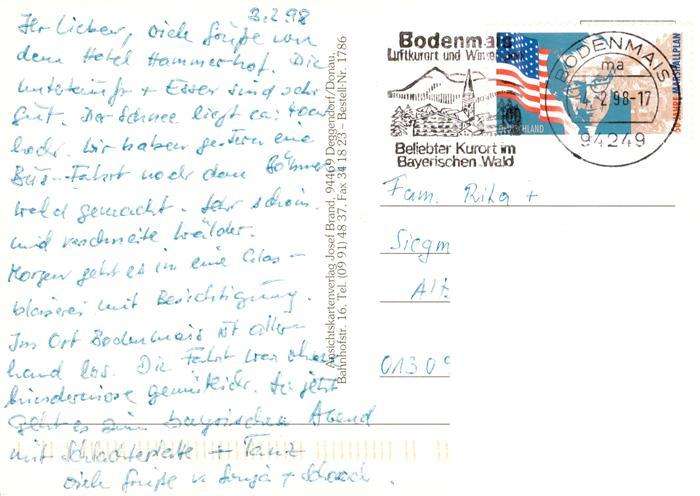 3.2.98
Ihr Lieben, viele Grüße von
dem Hotel Hammerhof. Die
Unterkunft + Essen sind sehr
gut. Der Schnee liegt ca:
hoch. Wir haben gestern eine
Bus-Fahrt nach dem Böhmer
wald gemacht. Sehr schön
und verschneite Wälder.
Morgen geht es in eine Glas-
bläserei mit Besichtigung.
Im Ort Bodenmais ist aller-
hand los. Die Fahrt war ohne
hindernisse. So jetzt
geht es zum bayrischen Abend
mit Schlachteplatte + Tanz
viele Grüße v. Sonja +
Ansichtskartenverlag Josef Brand, 94469 Deggendorf/Donau,
Bahnhofstr. 16, Tel. (09 91) 48 37, Fax 34 18 23 – Bestell-Nr. 1786
Bodenmais
Luftkurort und Wintersport
Beliebter Kurort im
Bayerischen Wald
BODENMAIS
ma
4.2.98-17
94249
100
DEUTSCHLAND
50 JAHRE MARSHALLPLAN
Fam. Rita +
Siegm
Alt
01309